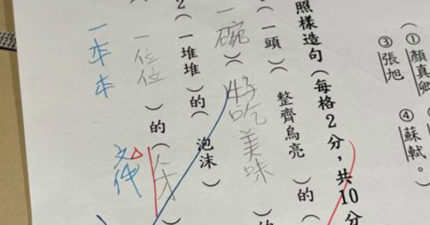 (①顏真卿
③張旭 ④蘇軾。
照樣造句(每格2分,共10分
(一頭)(整齊烏亮)的(
一碗)(好吃美味)的
2(一堆堆)的(泡沫)
一位位)的(
一本本